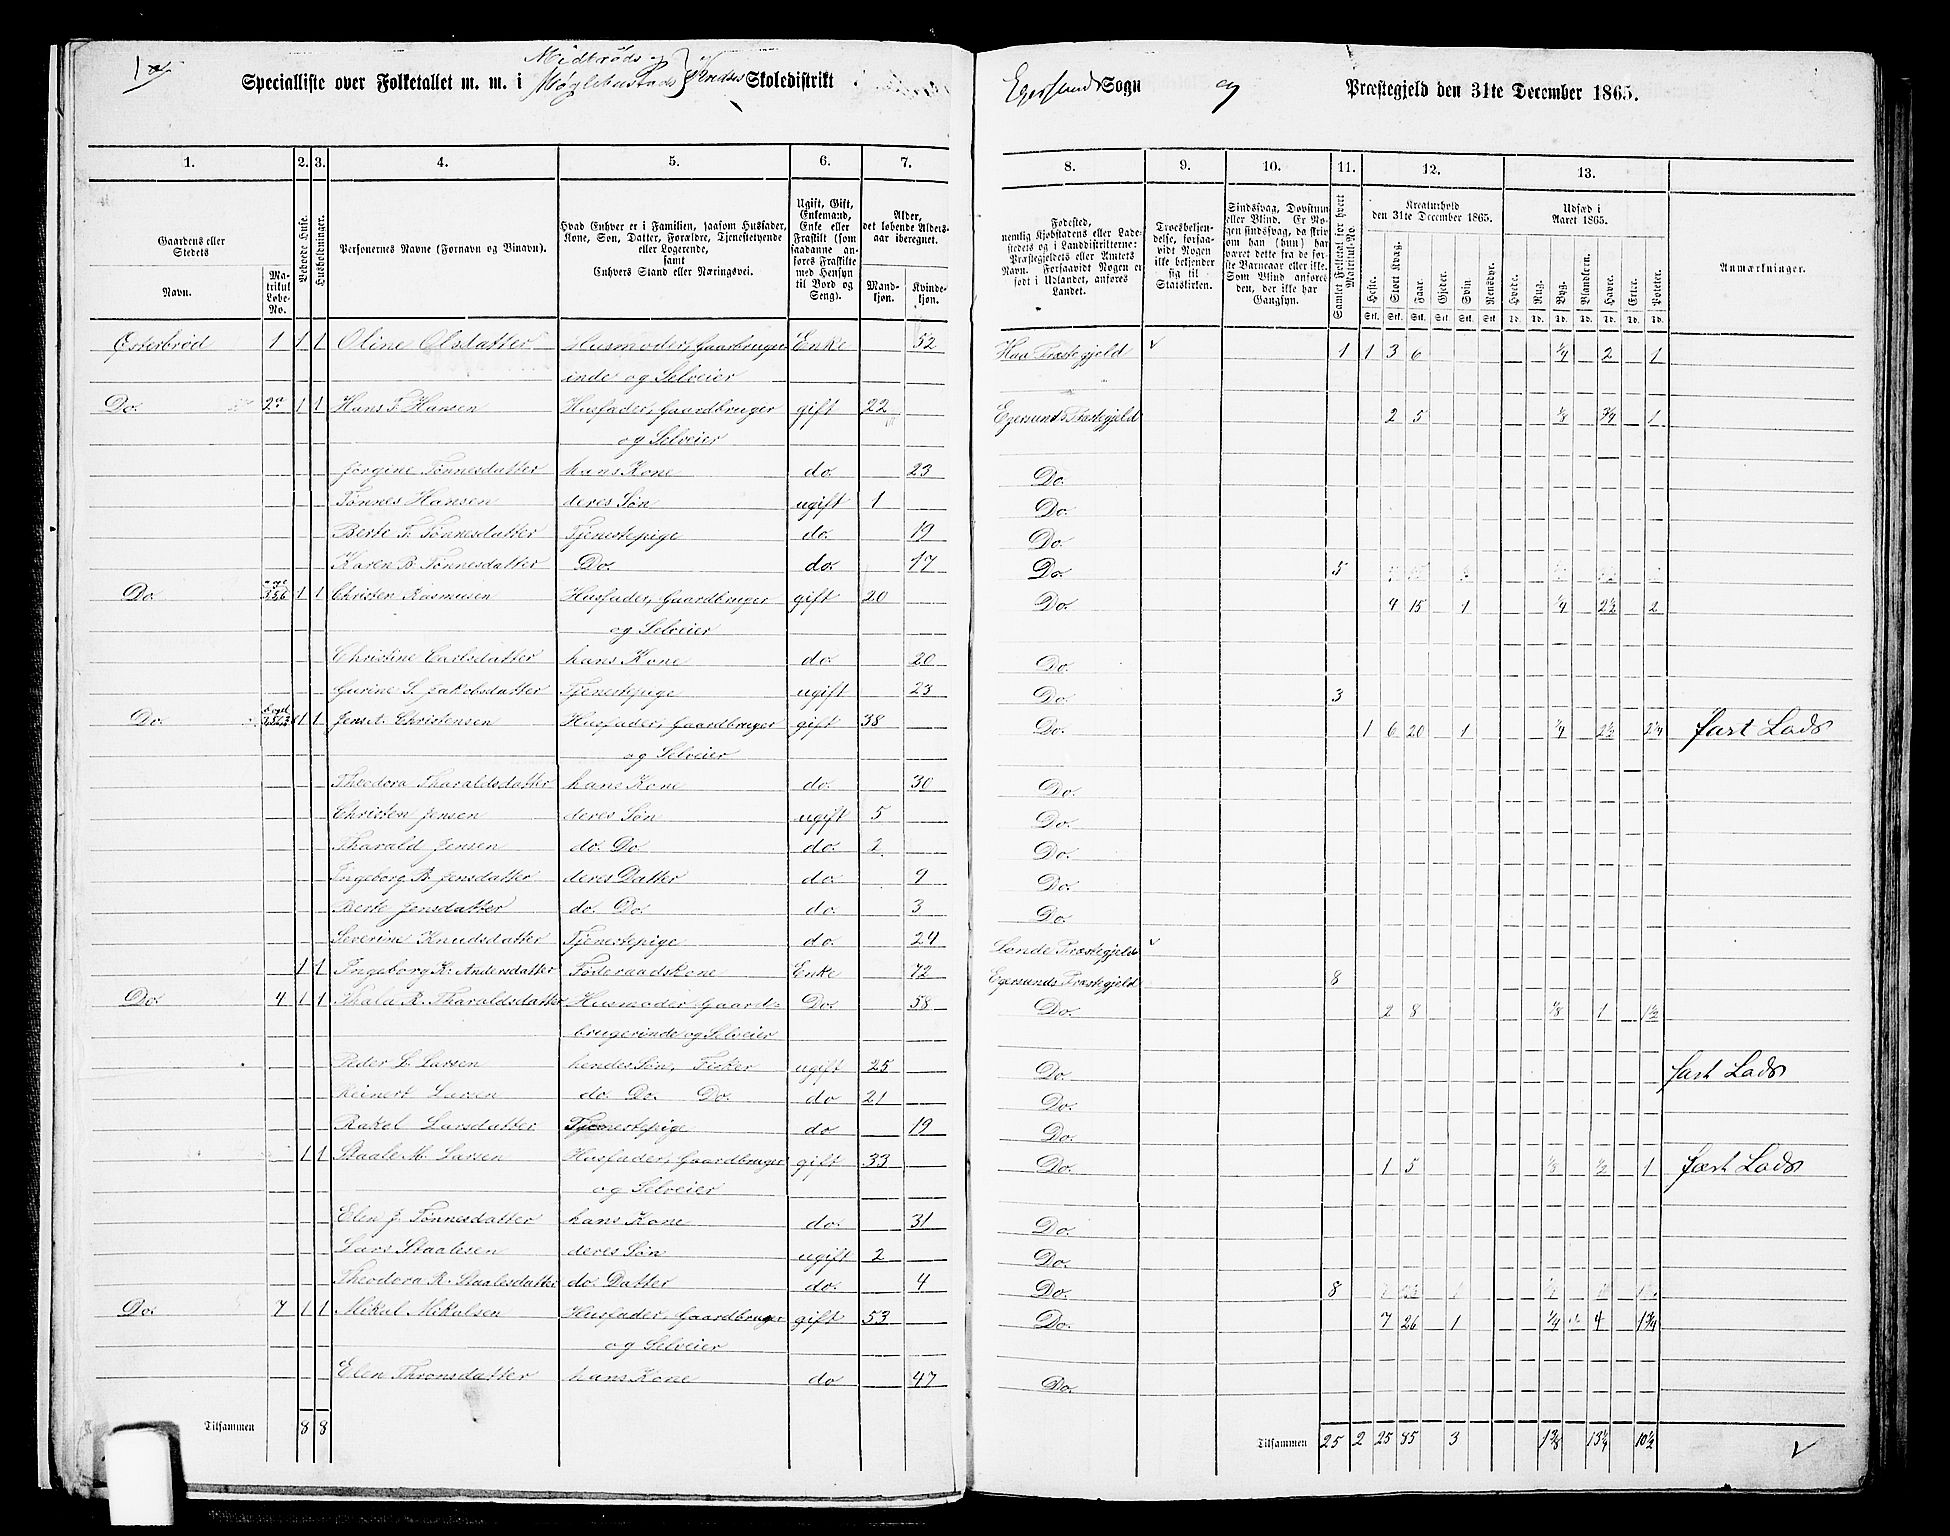 Midbrøds og
Specialliste over Folketallet m. m. i Møglebustads Kredses Skoledistrikt
Egersunds Sogn og Præstegjeld den 31te December 1865.
1. 2. 3. 4. 5. 6. 7. 8. 9. 10. 11. 12. 13.
Gaardens eller Stedets Navn. Matrikul Løbe-No. Beboede Huse. Husholdninger. Personernes Navne (Fornavn og Tilnavn). Hvad Enhver er i Familien, saasom Husfader, Kone, Søn, Datter, Forældre, Tjenestetyende eller Logerende, samt Enhvers Stand eller Næringsvei. Ugift, Gift, Enkemand, Enke eller Fraskilt (som saadanne anføres Fraskilte med Hensyn til Bord og Seng). Alder, det løbende Aldersaar iberegnet. Mandkjøn. Kvindekjøn.
Fødested, nemlig Kjøbstadens eller Ladestedets og i Landdistrikterne: Præstegjeldets eller Amtets Navn. Forsaavidt Nogen er født i Udlandet, anføres Landet. Troesbekjendelse, forsaavidt Nogen ikke bekjender sig til Statskirken. Sindssvag, Døvstum eller Blind. Er Nogen sindssvag, da hvorvidt han (hun) har været dette fra de første Barneaar eller ikke. Som Blind anføres den, der ikke har Gangsyn. Samlet Folketal for hvert Matrikul-No. Kreaturhold den 31te December 1865. Heste. Stort Kvæg. Faar. Gjeder. Svin. Rensdyr. Udsæd i Aaret 1865. Hvede. Rug. Byg. Blandkorn. Havre. Erter. Poteter. Anmærkninger.
Østerbrød 1 1 1 Oline Olsdatter Husmoder, Gaardbruger Enke 52 Haa Præstegjeld 1 1 3 6 1/4 2 1
inde og Selveier
Do. 2a 1 1 Hans T. Hansen Husfader, Gaardbruger gift 22 Egersunds Præstegjeld 2 5 1/8 3/4 1
og Selveier
Jørgine Tønnesdatter hans Kone do. 23 Do.
Tønnes Hansen deres Søn ugift 1 Do.
Berte T. Tønnesdatter Tjenestepige do. 19 Do.
Karen B. Tønnesdatter Do. do. 17 Do. 5
Do. 1 1 Christen Rasmusen Husfader, Gaardbruger gift 20 Do. 4 15 1 1/4 2 1/2 2
og Selveier
Christine Carlsdatter hans Kone do. 20 Do.
Gurine S. Jakobsdatter Tjenestepige ugift 23 Do. 3
Do. 1 1 Christensen Husfader, Gaardbruger gift 38 Do. 1 6 20 1 1/4 2 1/2 2 1/4 fast Lods
og Selveier
Theodora Tharaldsdatter hans Kone do. 30 Do.
Christen Jensen deres Søn ugift 5 Do.
Tharald Jensen do. Do do. 2 Do.
Ingeborg B. Jensdatter deres Datter do. 9 Do.
Berte Jensdatter do. Do. do. 3 Do.
Severine Knudsdatter Tjenestepige do. 24 Præstegjeld
1 1 Ingeborg K. Andersdatter Føderaadskone Enke 72 Egersunds Præstegjeld 8
Do. 4 1 1 Thala R. Tharaldsdatter Husmoder, Gaard- Do. 58 Do. 2 8 1/8 1 1 1/2
brugerinde og Selveier
Peder L. Larsen hendes Søn, Fisker ugift 25 Do. fast Lods
Reinert Larsen do. Do. Do. do 21 Do.
Rakel Larsdatter Tjenestepige do 19 Do.
1 1 Staale M. Larsen Husfader, Gaardbruger gift 33 Do. 1 5 1/8 1/2 1 fast Lods
og Selveier
Elen J. Tønnesdatter hans Kone do. 31 Do.
Lars Staalesen deres Søn ugift 2 Do.
Theodora R. Staalesdatter do. Datter do. 4 Do. 8
Do. 7 1 1 Mikal Mikalsen Husfader, Gaardbruger gift 53 Do. 7 26 1 1/4 4 1 3/4
og Selveier
Elen Thronsdatter hans Kone do 47 Do.
Tilsammen 8 8 Tilsammen 25 2 25 85 3 1 3/8 13 1/4 10 1/2